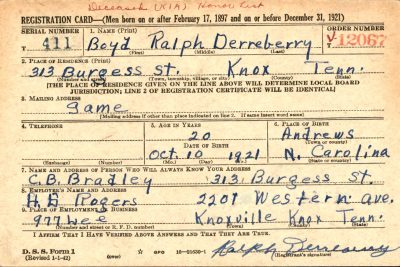 Deceased (KIA) Honor List
REGISTRATION CARD—(Men born on or after February 17, 1897 and on or before December 31, 1921)
SERIAL NUMBER 1. NAME (Print) ORDER NUMBER
T 411 Boyd Ralph Derreberry V 12067
(First) (Middle) (Last)
2. PLACE OF RESIDENCE (Print)
313 Burgess St. Knox Tenn.
(Number and street) (Town, township, village, or city) (County) (State)
[THE PLACE OF RESIDENCE GIVEN ON THE LINE ABOVE WILL DETERMINE LOCAL BOARD
JURISDICTION; LINE 2 OF REGISTRATION CERTIFICATE WILL BE IDENTICAL]
3. MAILING ADDRESS
Same
[Mailing address if other than place indicated on line 2. If same insert word same]
4. TELEPHONE 5. AGE IN YEARS 6. PLACE OF BIRTH
20 Andrews
DATE OF BIRTH (Town or county)
Oct. 10 1921 N. Carolina
(Exchange) (Number) (Mo.) (Day) (Yr.) (State or country)
7. NAME AND ADDRESS OF PERSON WHO WILL ALWAYS KNOW YOUR ADDRESS
C.B. Bradley 313 Burgess St.
8. EMPLOYER'S NAME AND ADDRESS
Rogers 2201 Western ave.
9. PLACE OF EMPLOYMENT OR BUSINESS
Knoxville Knox Tenn.
(Number and street or R. F. D. number) (Town) (County) (State)
I AFFIRM THAT I HAVE VERIFIED ABOVE ANSWERS AND THAT THEY ARE TRUE.
D. S. S. Form 1
(Revised 1-1-42) (over) GPO 16-21630-1 Ralph Derreberry
(Registrant's signature)